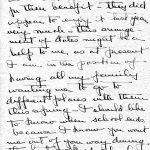 in their benefit - they did
appear to enjoy it last year
very much - this arrange-
ment of dates might be a
help to me, as at present
I am in the position of
having all my family
wanting me to go to
different places with them
this spring & should like
to know when school ends
because I know you want
me out of you way during